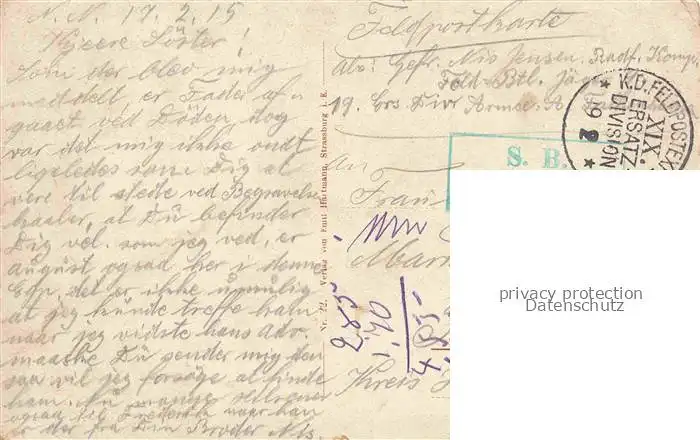 N. N. 17. 2. 15
Kjære Söster!
Som der blev mig
meddelt er Fader af-
gaaet ved Döden, dog
var det mig ikke ondt
ligeledes som Dig at
være til stede ved Begravelse
haaber, at Du befinder
Dig vel. som jeg ved, er
august ogsaa her i denne
Egn, det er ikke umulig
at jeg kunde treffe ham
naar jeg vidste hans Adr.
maaske Du sender mig den
saa vil jeg forsöge at finde
ham. Nu mange Hilsener
ogsaa til Frederik naar han
er der fra Din Broder Nis.
Nr. 72. Verlag von Emil Hartmann, Strassburg i. E.
Feldpostkarte
Abs: Gefr. Nis Jensen. Radf. Komp.
Feld-Btl. Jäger
19. Ers. Div Armee. A.
K.D. FELDPOSTEX
XIX.
ERSATZ-
DIVISION
19 2
S. B.
An
Frau
Kreis
2.85
1.40
privacy protection
Datenschutz